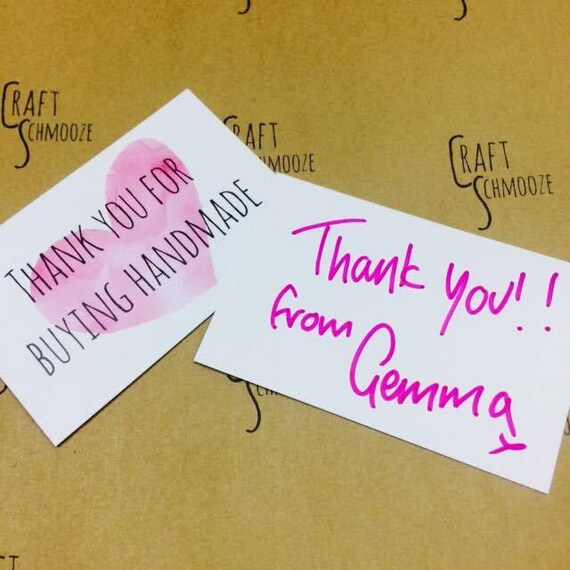 CRAFT
SCHMOOZE
CRAFT
SCHMOOZE
CRAFT
SCHMOOZE
THANK YOU FOR
BUYING HANDMADE
Thank you!!
from
Gemma
x
SCHMOOZE